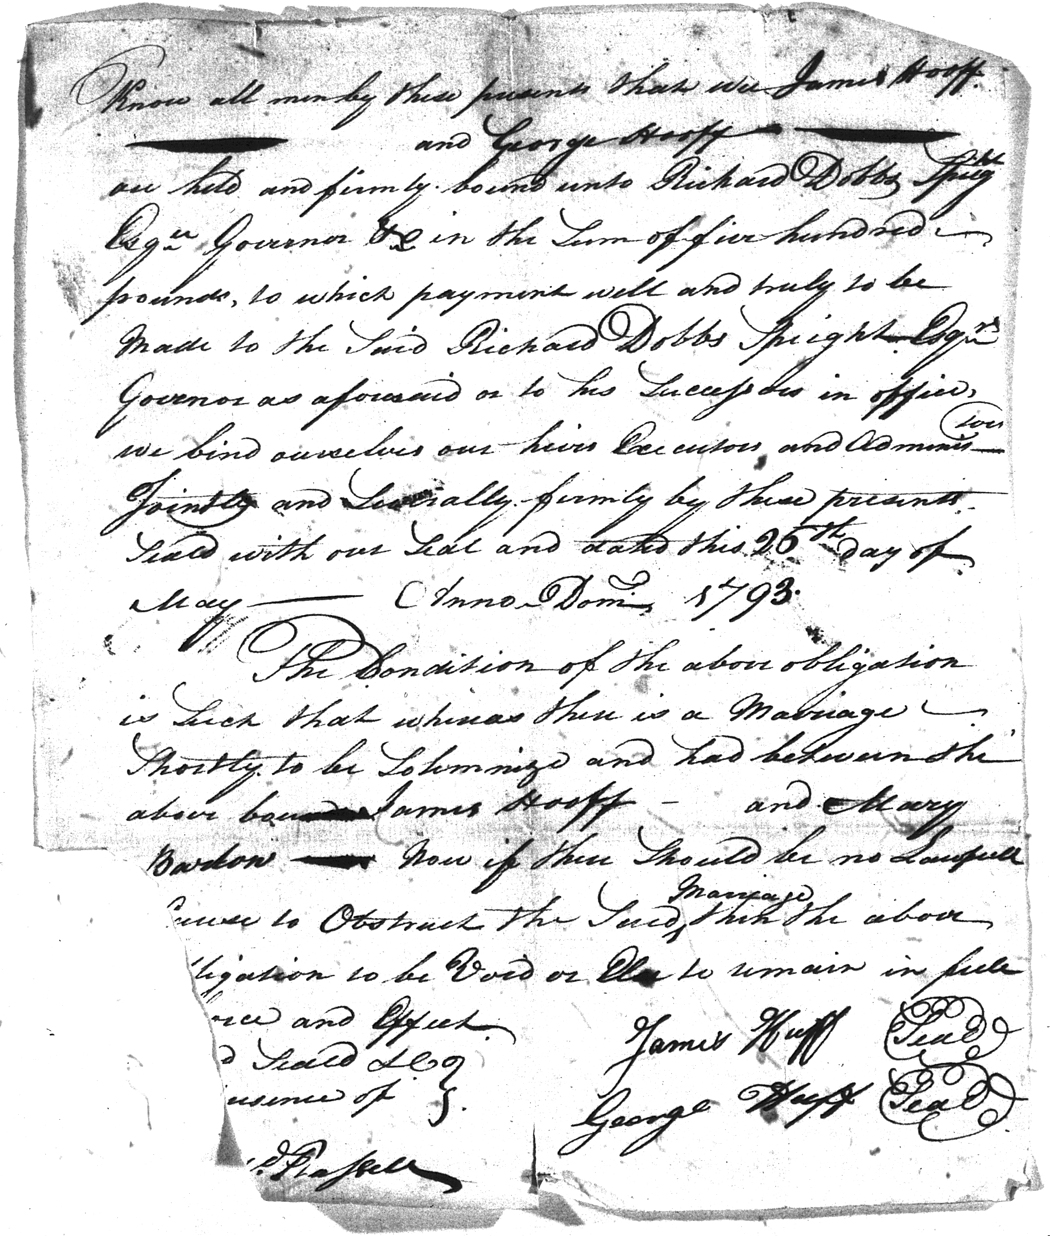 Know all men by these presents that we James Hooff
and George Hooff
are held and firmly bound unto Richard Dobbs Spight
Esqr Governor &c in the Sum of five hundred
pounds, to which payment well and truly to be
Made to the Said Richard Dobbs Speight Esqr
Governor as aforesaid or to his Successors in office,
we bind ourselves our heirs Executors and Adminis-
tors
Jointly and Severally firmly by these presents
Seald with our Seal and dated this 26th day of
May Anno Dom. 1793.
The Condition of the above obligation
is Such that whereas there is a Marriage
Shortly to be Solemnize and had between the
above bound James Hooff - and Mary
Bardon Now if there Should be no Lawfull
Cause to Obstruct the Said Marriage then the above
ligation to be Void or Else to remain in full
orce and Effect
James Huff Seal
d Seald &c
George Huff Seal
resence of
d Flassell